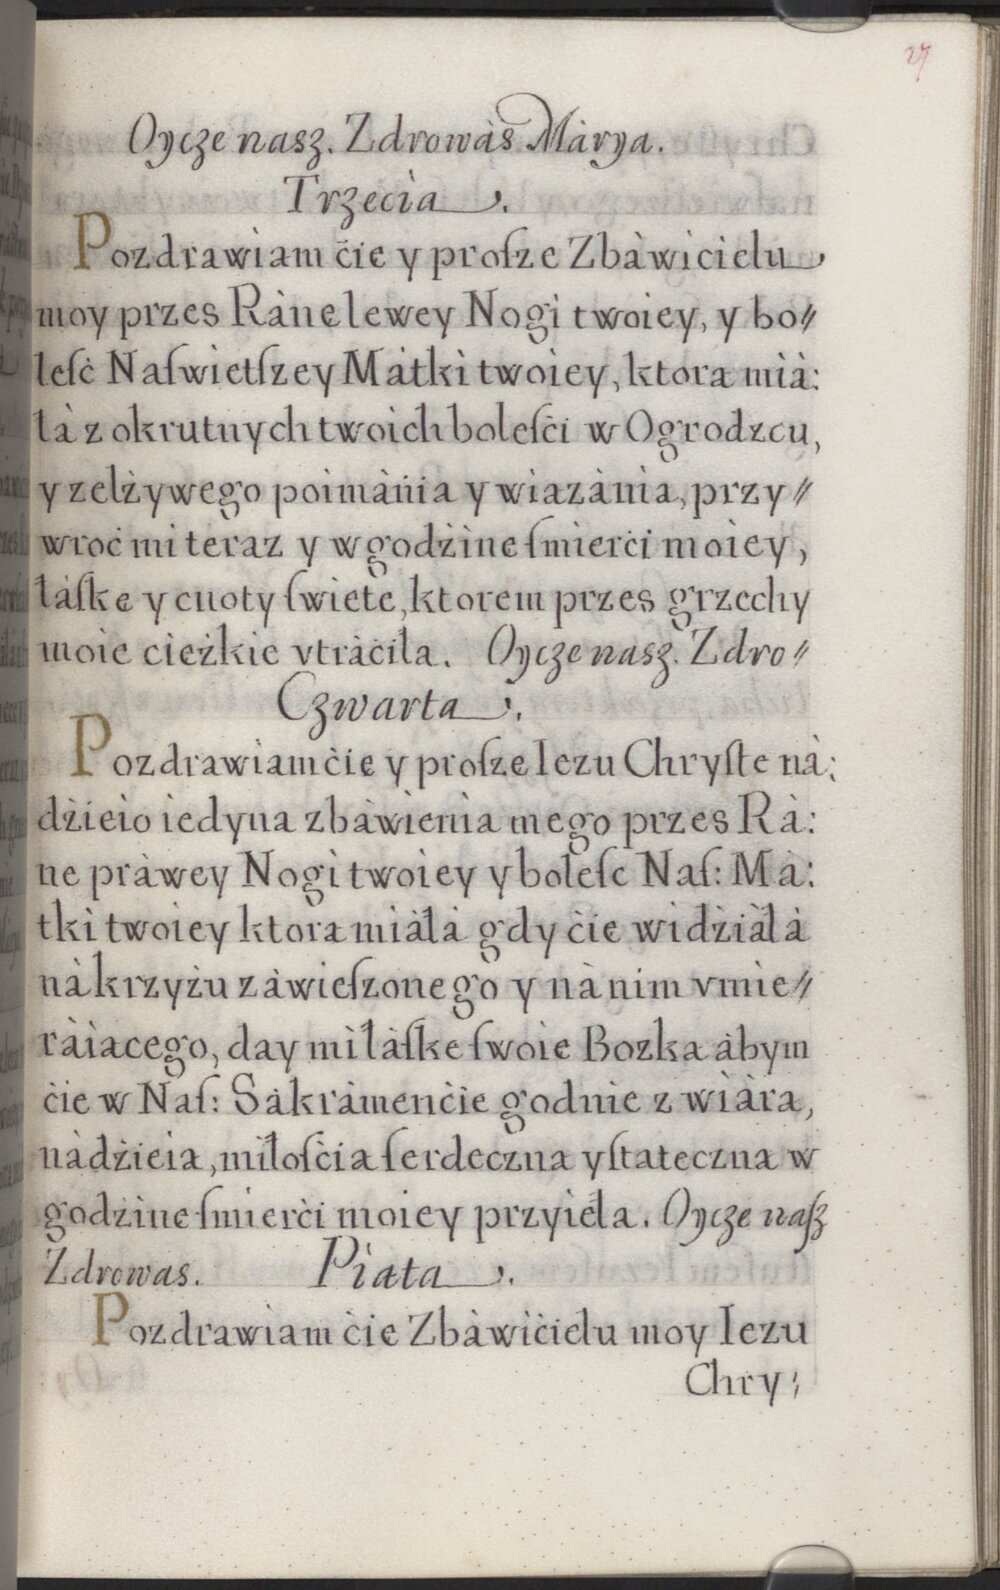 27
Oycze nasz. Zdrowàs Màrya.
Trzecia.
Pozdrawiam ċie y proſze Zbàwicielu
moy przes Ràne lewey Nogi twoiey, y bo//
leſċ Naſwietſzey Màtki twoiey, ktora mià:
łà z okrutnych twoich boleſċi w Ogrodzcu,
y zelżywego poimània y wiazània, przy//
wroċ mi teraz y w godżine ſmierċi moiey,
łàſke y cnoty ſwiete, ktorem przes grzechy
moie cieżkie vtràċiła. Oycze nasz. Zdro//
Czwarta.
Pozdrawiam ċie y proſze Iezu Chryſte nà:
dżieio iedyna zbàwienia mego przes Rà:
ne pràwey Nogi twoiey y boleſc Naſ: Mà:
tki twoiey ktora miàłà gdy ċie widżiàłà
nà krzyżu zàwieſzonego y nà nim vmie//
ràiacego, day mi łàſke ſwoie Bozka àbym
ċie w Naſ: Sàkràmenċie godnie z wiàra,
nàdżieia, miłoſċia ſerdeczna y ſtateczna w
godzine ſmierċi moiey przyieła. Oycze naſz
Zdrowas. Piata.
Pozdrawiam ċie Zbàwiċielu moy Iezu
Chry: